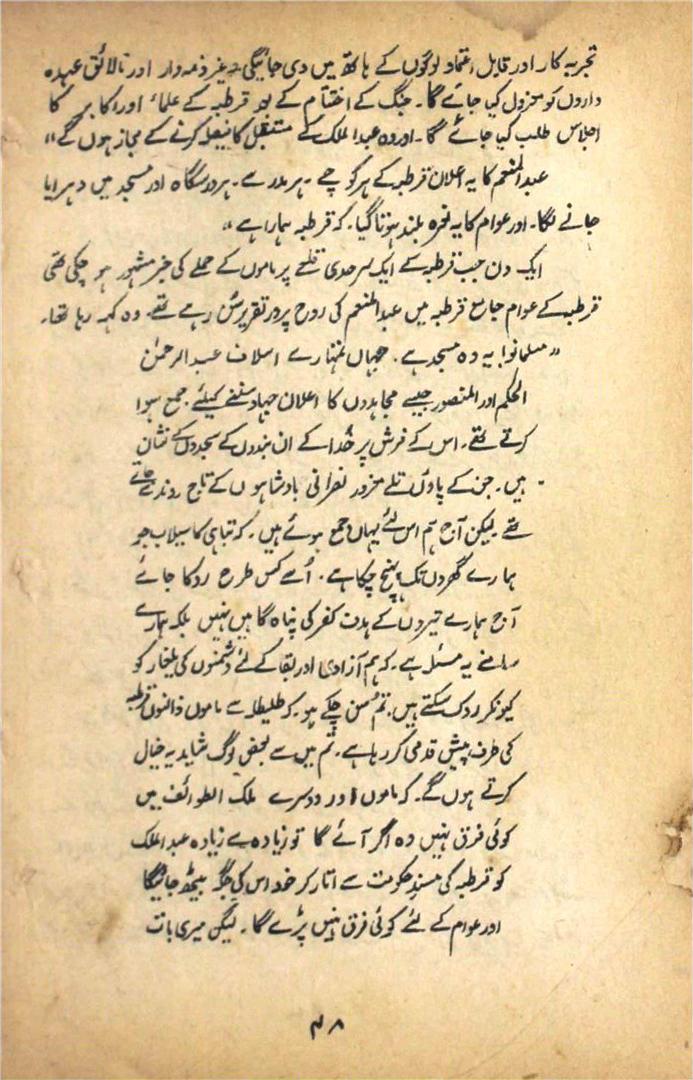 تجربہ کار اور قابل اعتماد لوگوں کے ہاتھ میں دی جائیگی۔ غیر ذمہ وار اور نالائق عہدہ
داروں کو معزول کیا جائے گا۔ جنگ کے اختتام کے بعد قرطبہ کے علماء اور اکابر کا
اجلاس طلب کیا جائے گا۔ اور وہ عبدالملک کے مستقبل کا فیصلہ کرنے کے مجاز ہوں گے"
عبدالمنعم کا یہ اعلان قرطبہ کے ہر کوچے۔ ہر مدرسے۔ ہر درسگاہ اور مسجد میں دہرایا
جانے لگا۔ اور عوام کا یہ نعرہ بلند ہوتا گیا۔ کہ قرطبہ ہمارا ہے"
ایک دن جب قرطبہ کے ایک سرحدی قلعے پر ماموں کے حملے کی خبر مشہور ہو چکی تھی
قرطبہ کے عوام جامع قرطبہ میں عبدالمنعم کی روح پرور تقریر سُن رہے تھے۔ وہ کہہ رہا تھا۔
"مسلمانو! یہ وہ مسجد ہے۔ جہاں تمہارے اسلاف عبدالرحمٰن
الحکم اور المنصور جیسے مجاہدوں کا اعلان جہاد سننے کیلئے جمع ہوا
کرتے تھے۔ اس کے فرش پر خُدا کے ان بندوں کے سجدوں کے نشان
ہیں۔ جن کے پاؤں تلے مغرور نصرانی بادشاہوں کے تاج روندے جاتے
تھے۔ لیکن آج ہم اس لئے یہاں جمع ہوئے ہیں۔ کہ تباہی کا سیلاب جو
ہمارے گھروں تک پہنچ چکا ہے۔ اُسے کس طرح روکا جائے
آج ہمارے تیروں کے ہدف کفر کی پناہ گاہیں نہیں بلکہ ہمارے
سامنے یہ مسئلہ ہے۔ کہ ہم آزادی اور بقا کے لئے دشمنوں کی یلغار کو
کیونکر روک سکتے ہیں۔ تم سُن چکے ہو۔ کہ طلیطلہ سے ماموں ذالنون قرطبہ
کی طرف پیش قدمی کر رہا ہے۔ تم میں سے بعض لوگ شاید یہ خیال
کرتے ہوں گے۔ کہ ماموں اور دوسرے ملک الطوائف میں
کوئی فرق نہیں وہ اگر آئے گا تو زیادہ سے زیادہ عبدالملک
کو قرطبہ کی مسندِ حکومت سے اتار کر خود اس کی جگہ بیٹھ جائیگا
اور عوام کے لئے کوئی فرق نہیں پڑے گا۔ لیکن میری بات
۴۸